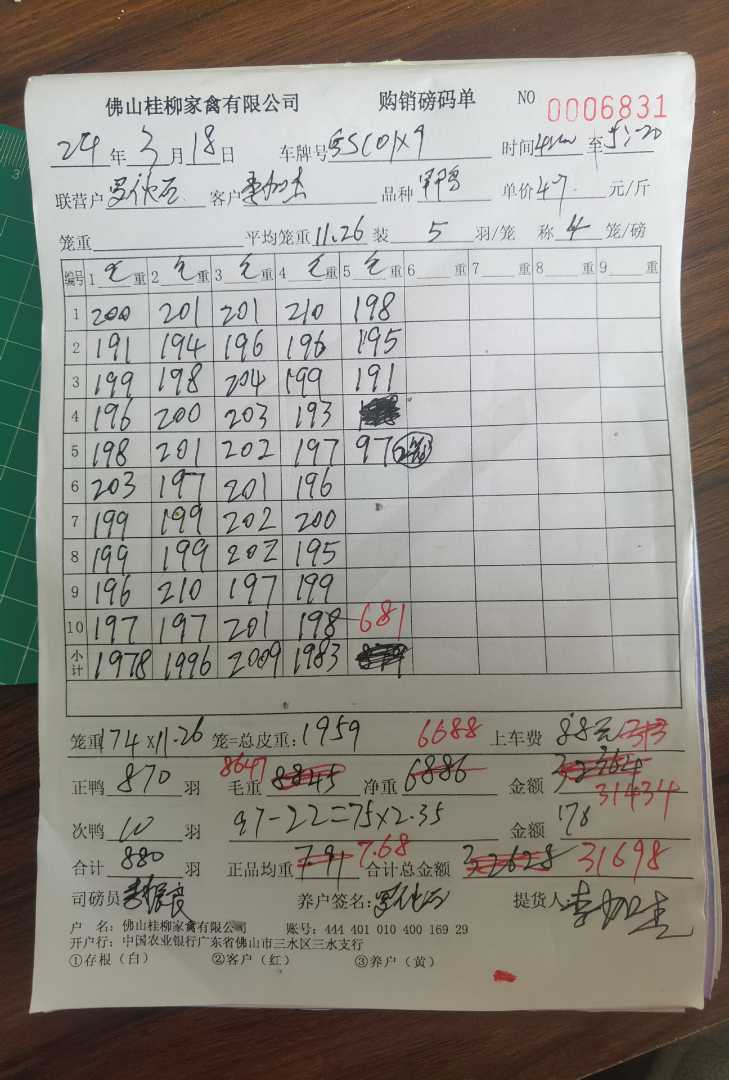 佛山桂柳家禽有限公司 购销磅码单 NO 0006831
24年3月18日 车牌号 时间 至5:20
联营户 客户 品种 单价4.7元/斤
笼重 平均笼重11.26装5羽/笼 称4笼/磅
编号 1毛重 2毛重 3毛重 4毛重 5毛重 6重 7重 8重 9重
1 200 201 201 210 198
2 191 194 196 196 195
3 199 198 204 199 191
4 196 200 203 193
5 198 201 202 197 97
6 203 197 201 196
7 199 199 202 200
8 199 199 202 195
9 196 210 197 199
10 197 197 201 198 681
小计 1978 1996 2009 1983
笼重174×11.26笼=总皮重:1959 6688 上车费88元
正鸭870羽 毛重8845 8647 净重6886 金额 31434
次鸭10羽 97-22=75×2.35 金额176
合计880羽 正品均重7.91 7.68 合计总金额32628 31698
司磅员 养户签名: 提货人:李加杰
户 名:佛山桂柳家禽有限公司 账号:444 401 010 400 169 29
开户行:中国农业银行广东省佛山市三水区三水支行
①存根(白) ②客户(红) ③养户(黄)